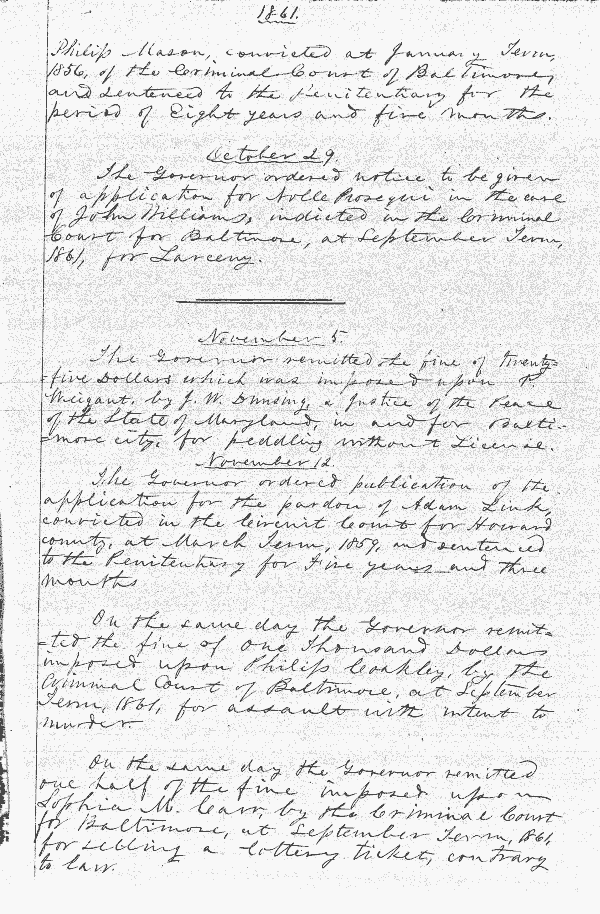 1861.
Philip Mason, convicted at January Term,
1856, of the Criminal Court of Baltimore,
and sentenced to the penitentiary for the
period of Eight years and five months.
October 29.
The Governor ordered notice to be given
of application for Nolle Prosequi in the case
of John Williams, indicted in the Criminal
Court for Baltimore, at September Term,
1861, for Larceny.
November 5.
The Governor remitted the fine of twenty=
=five Dollars which was imposed upon
Weigant, by J. W. Dunsing, a Justice of the Peace
of the State of Maryland, in and for Balti=
=more city, for peddling without License.
November 12.
The Governor ordered publication of the
application for the pardon of Adam Link,
convicted in the Circuit Court for Howard
county, at March Term, 1859, and sentenced
to the Penitentiary for Five years and three
months
On the same day the Governor remit=
=ted the fine of One Thousand Dollars
imposed upon Philip Coakley, by the
Criminal Court of Baltimore, at September
Term, 1861, for assault with intent to
murder.
On the same day the Governor remitted
one half of the fine imposed upon
Sophia M. Carr, by the Criminal Court
for Baltimore, at September Term, 1861,
for selling a lottery ticket, contrary
to law.